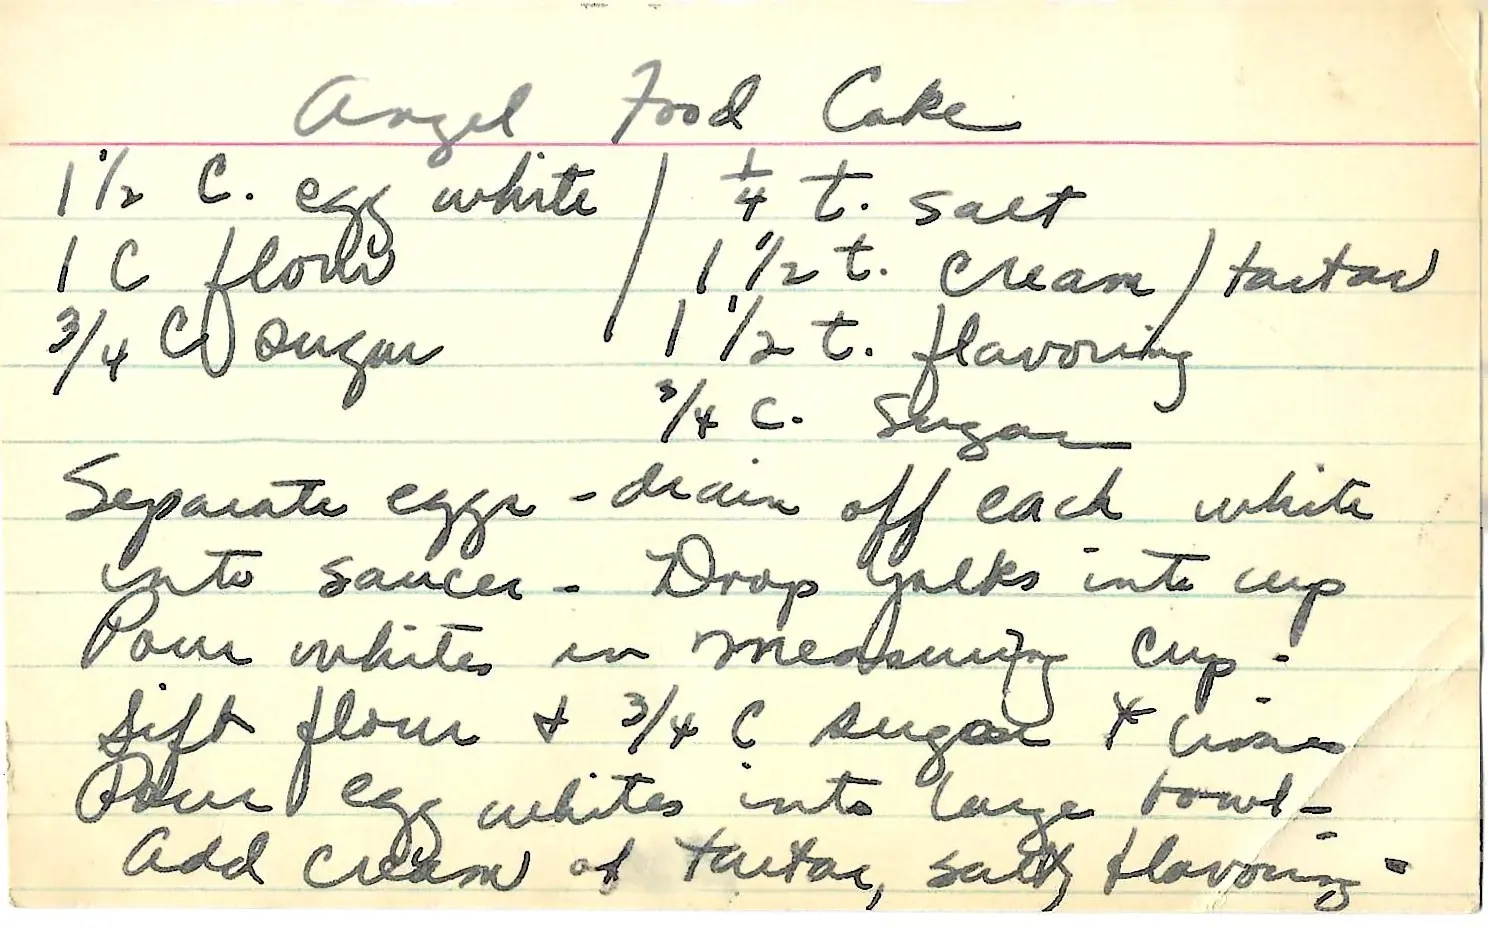 Angel Food Cake
1 1/2 C. egg white / 1/4 t. salt
1 C flour / 1 1/2 t. cream / tartar
3/4 C sugar 1 1/2 t. flavoring
3/4 C. Sugar
Separate eggs - drain off each white
into saucer - Drop yolks into cup
Pour whites in measuring cup -
Sift flour + 3/4 C sugar 4 times
Pour egg whites into large bowl -
Add cream of tartar, salt, flavoring -